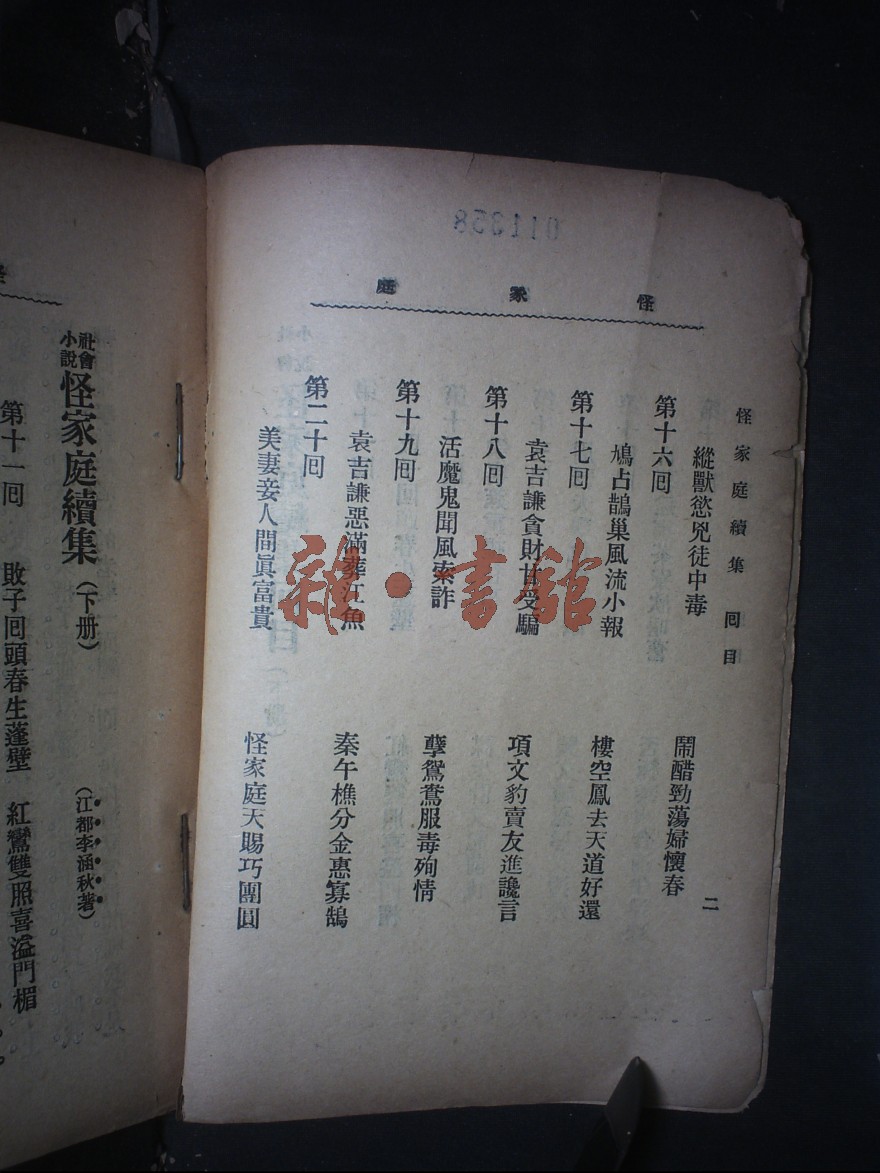 011358
怪家庭
怪家庭續集 回目 二
縱獸慾兇徒中毒 鬧醋勁蕩婦懷春
第十六回
鳩占鵲巢風流小報 樓空鳳去天道好還
第十七回
袁吉謙貪財甘受騙 項文豹賣友進讒言
第十八回
活魔鬼聞風索詐 孽鴛鴦服毒殉情
第十九回
袁吉謙惡滿葬江魚 秦午樵分金惠寡鵠
第二十回
美妻妾人間眞富貴 怪家庭天賜巧團圓
雜·書館
社會小說 怪家庭續集（下册） （江都李涵秋著）
第十一回 敗子回頭春生蓬壁 紅鸞雙照喜溢門楣